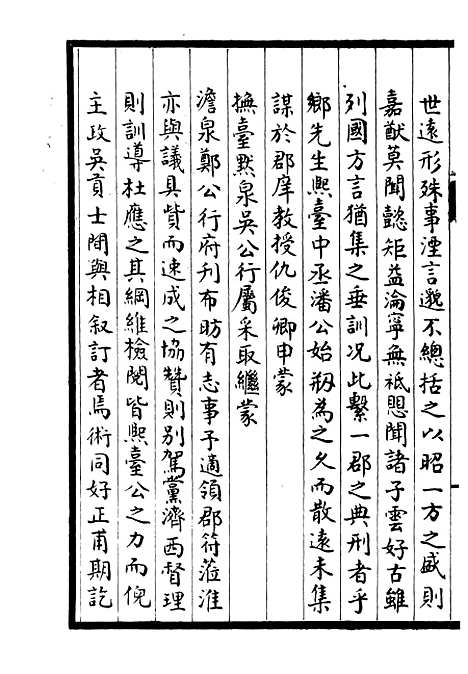 世遠形殊事湮言邈不總括之以昭一方之盛則
嘉猷莫聞懿矩益淪寧無祗恩聞諸子雲好古雖
列國方言猶集之垂訓况此繫一郡之典刑者乎
鄉先生熙臺中丞潘公始剏為之久而散遠未集
謀於郡庠教授仇俊卿申蒙
撫臺黙泉吳公行屬采取繼蒙
澹泉鄭公行府刋布昉有志事予適領郡符蒞淮
亦與議具貲而速成之協贊則别駕黨濟西督理
則訓導杜應之其綱維檢閱皆熙臺公之力而倪
主政吳貢士間與相叙訂者焉術同好正甫期訖